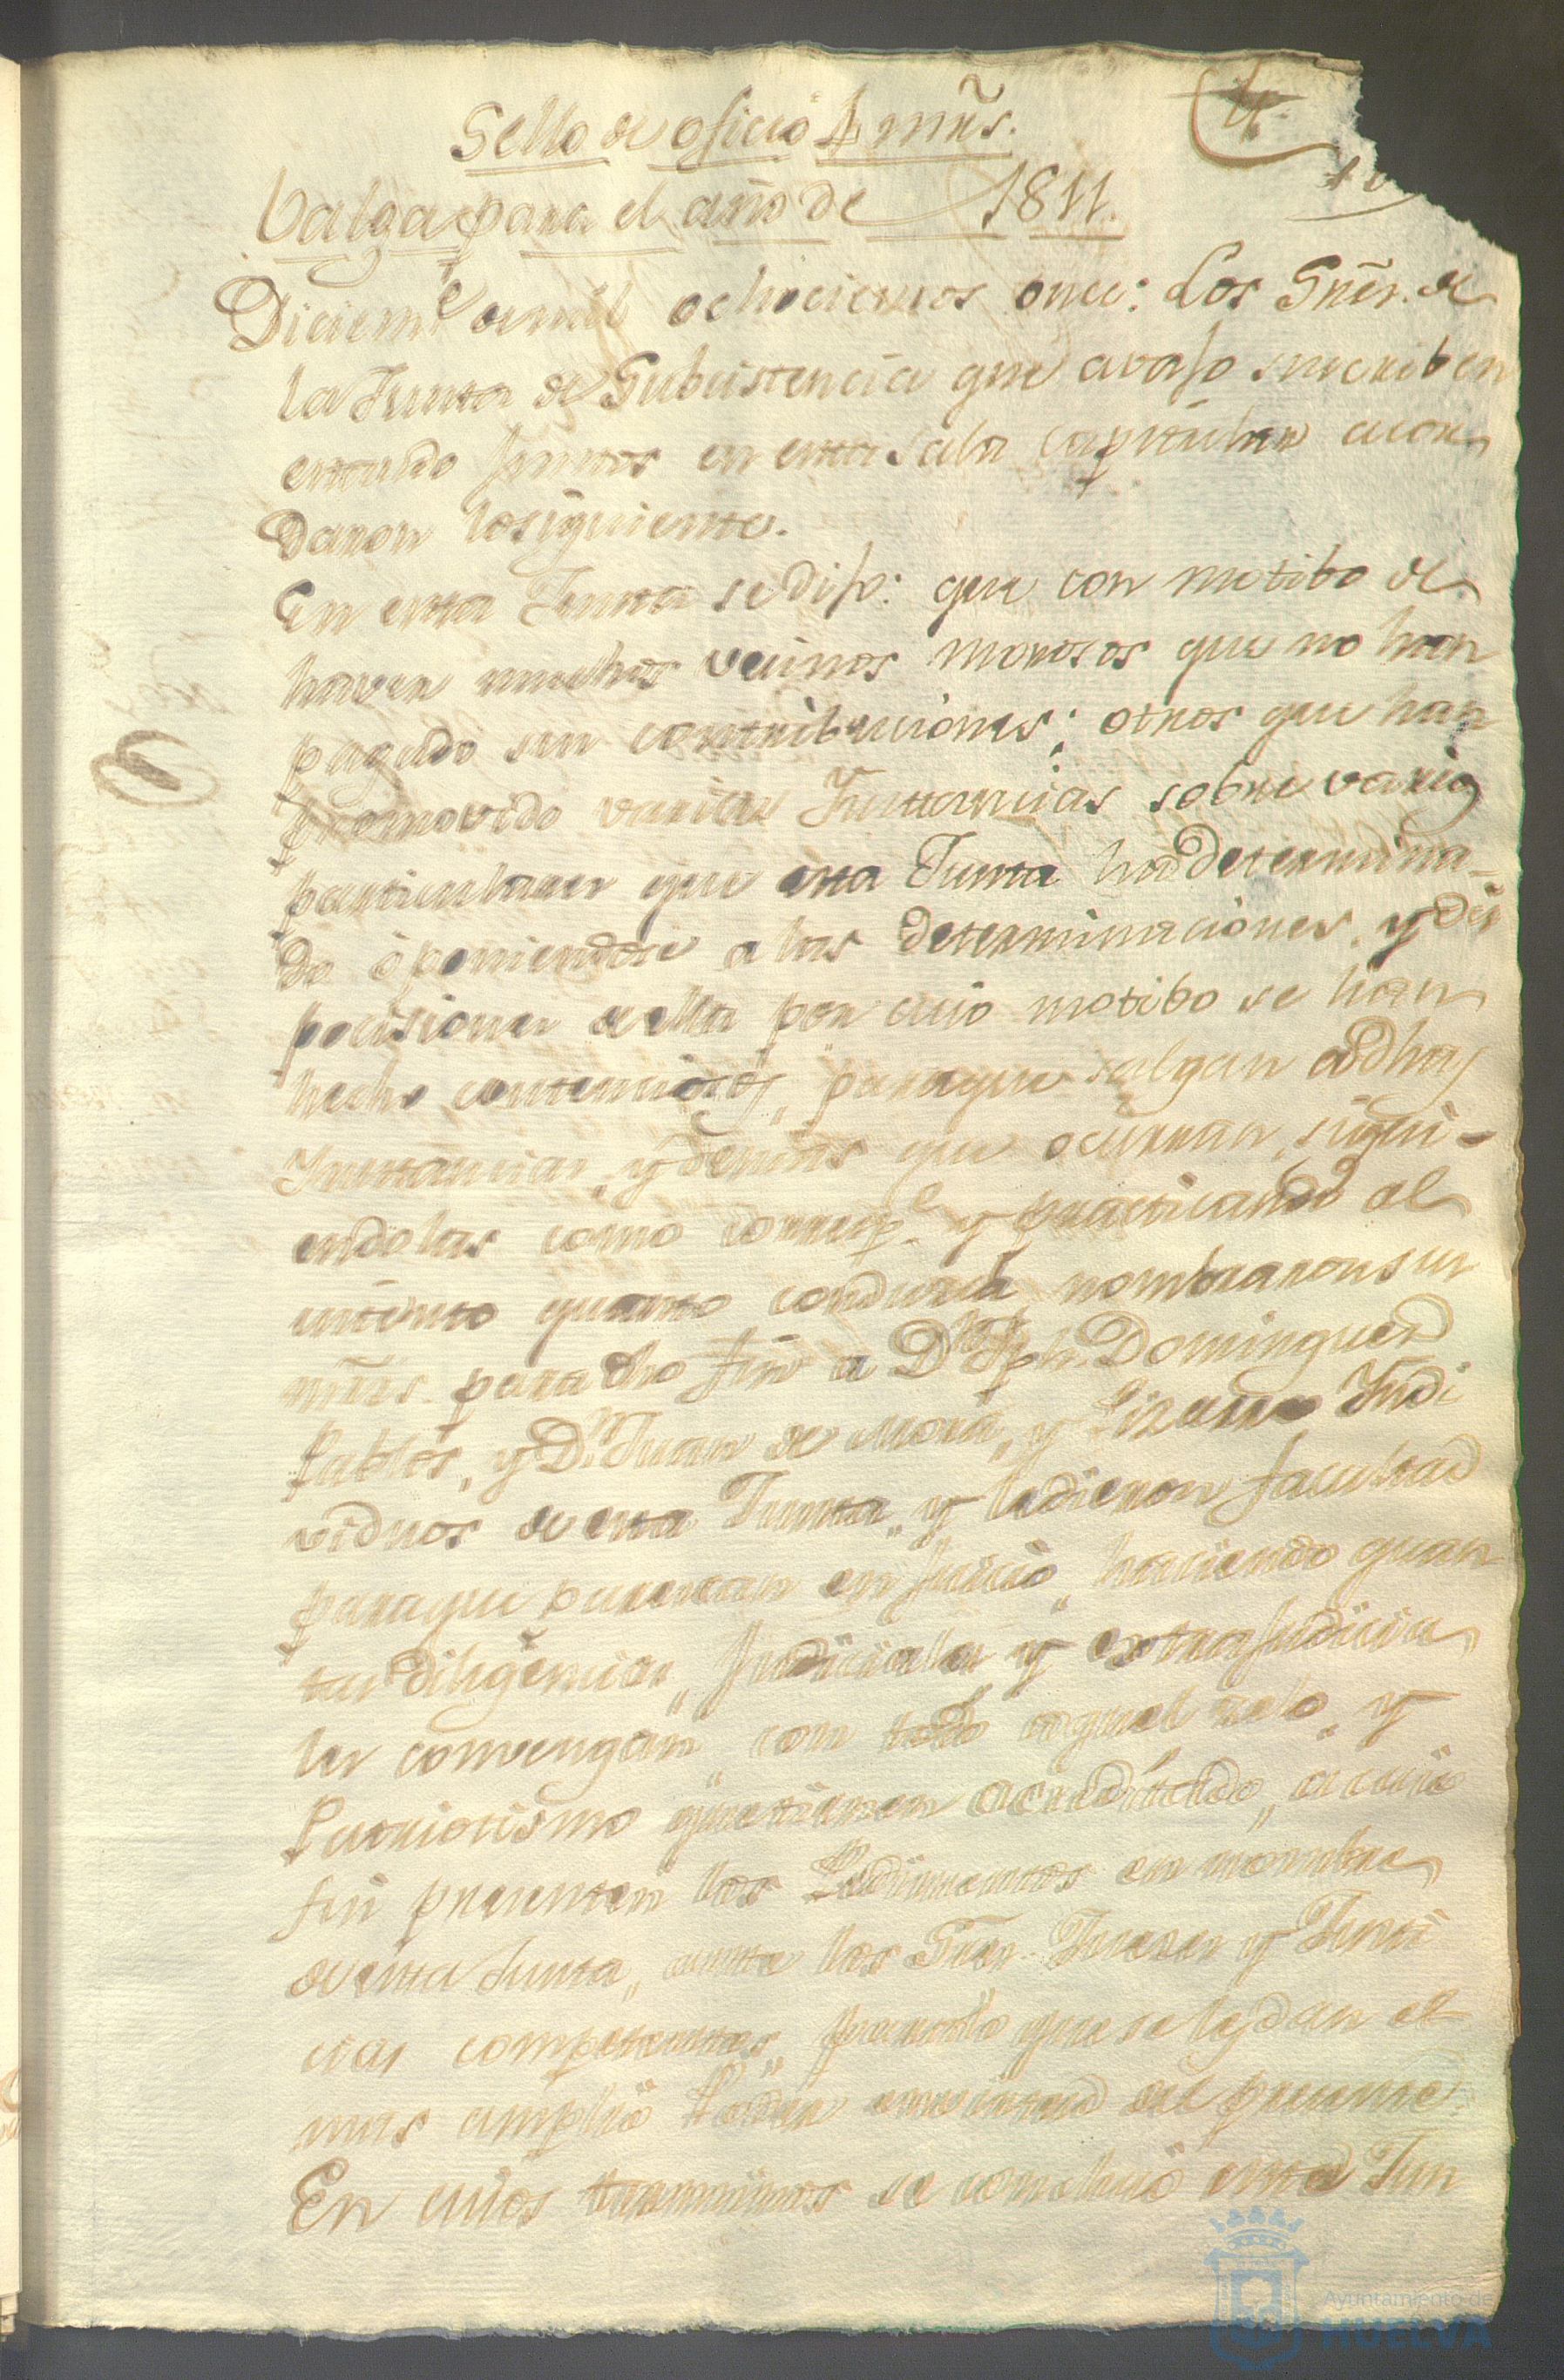 Sello de oficio 4 mrs.
Valga para el año de 1811.
Diciemᵉ de mil ochocientos once: Los Sres. de
la Junta de Subsistencia que avajo suscriben
estando juntos en esta Sala capitular acor
daron lo siguiente.
En esta Junta se dijo: que con motibo de
haver muchos vecinos morosos que no han
pagado sus contribuciones; otros que han
promovido varias Instancias sobre varios
particulares que esta Junta ha determina-
do oponiendose a las determinaciones, y dis
posiciones de ella por cuio motibo se han
hecho contenciosos, para que salgan a dhas
Instancias, y demas que ocurran, sigui-
endolas como corresp.ᵉ y practicando al
intento quanto conduzca nombraron sus
mrds. para dho fin a Dⁿ Jph. Dominguez
Pablos, y Dⁿ Juan de Mora, y Lizana Indi
viduos de esta Junta, y le dieron facultad
para que parezcan en juicio, haciendo quan
tas diligencias, judiciales y extrajudicia
les convengan, con todo aquel zelo, y
Patriotismo que tienen acreditado, a cuio
fin presenten los Pedimentos en nombre
de esta Junta, ante los Sres. Jueces y Justi
cias competentes, para todo que se les dan el
mas amplio Poder en virtud del presente
En cuios terminos se concluió esta Jun
Ayuntamiento de
HUELVA